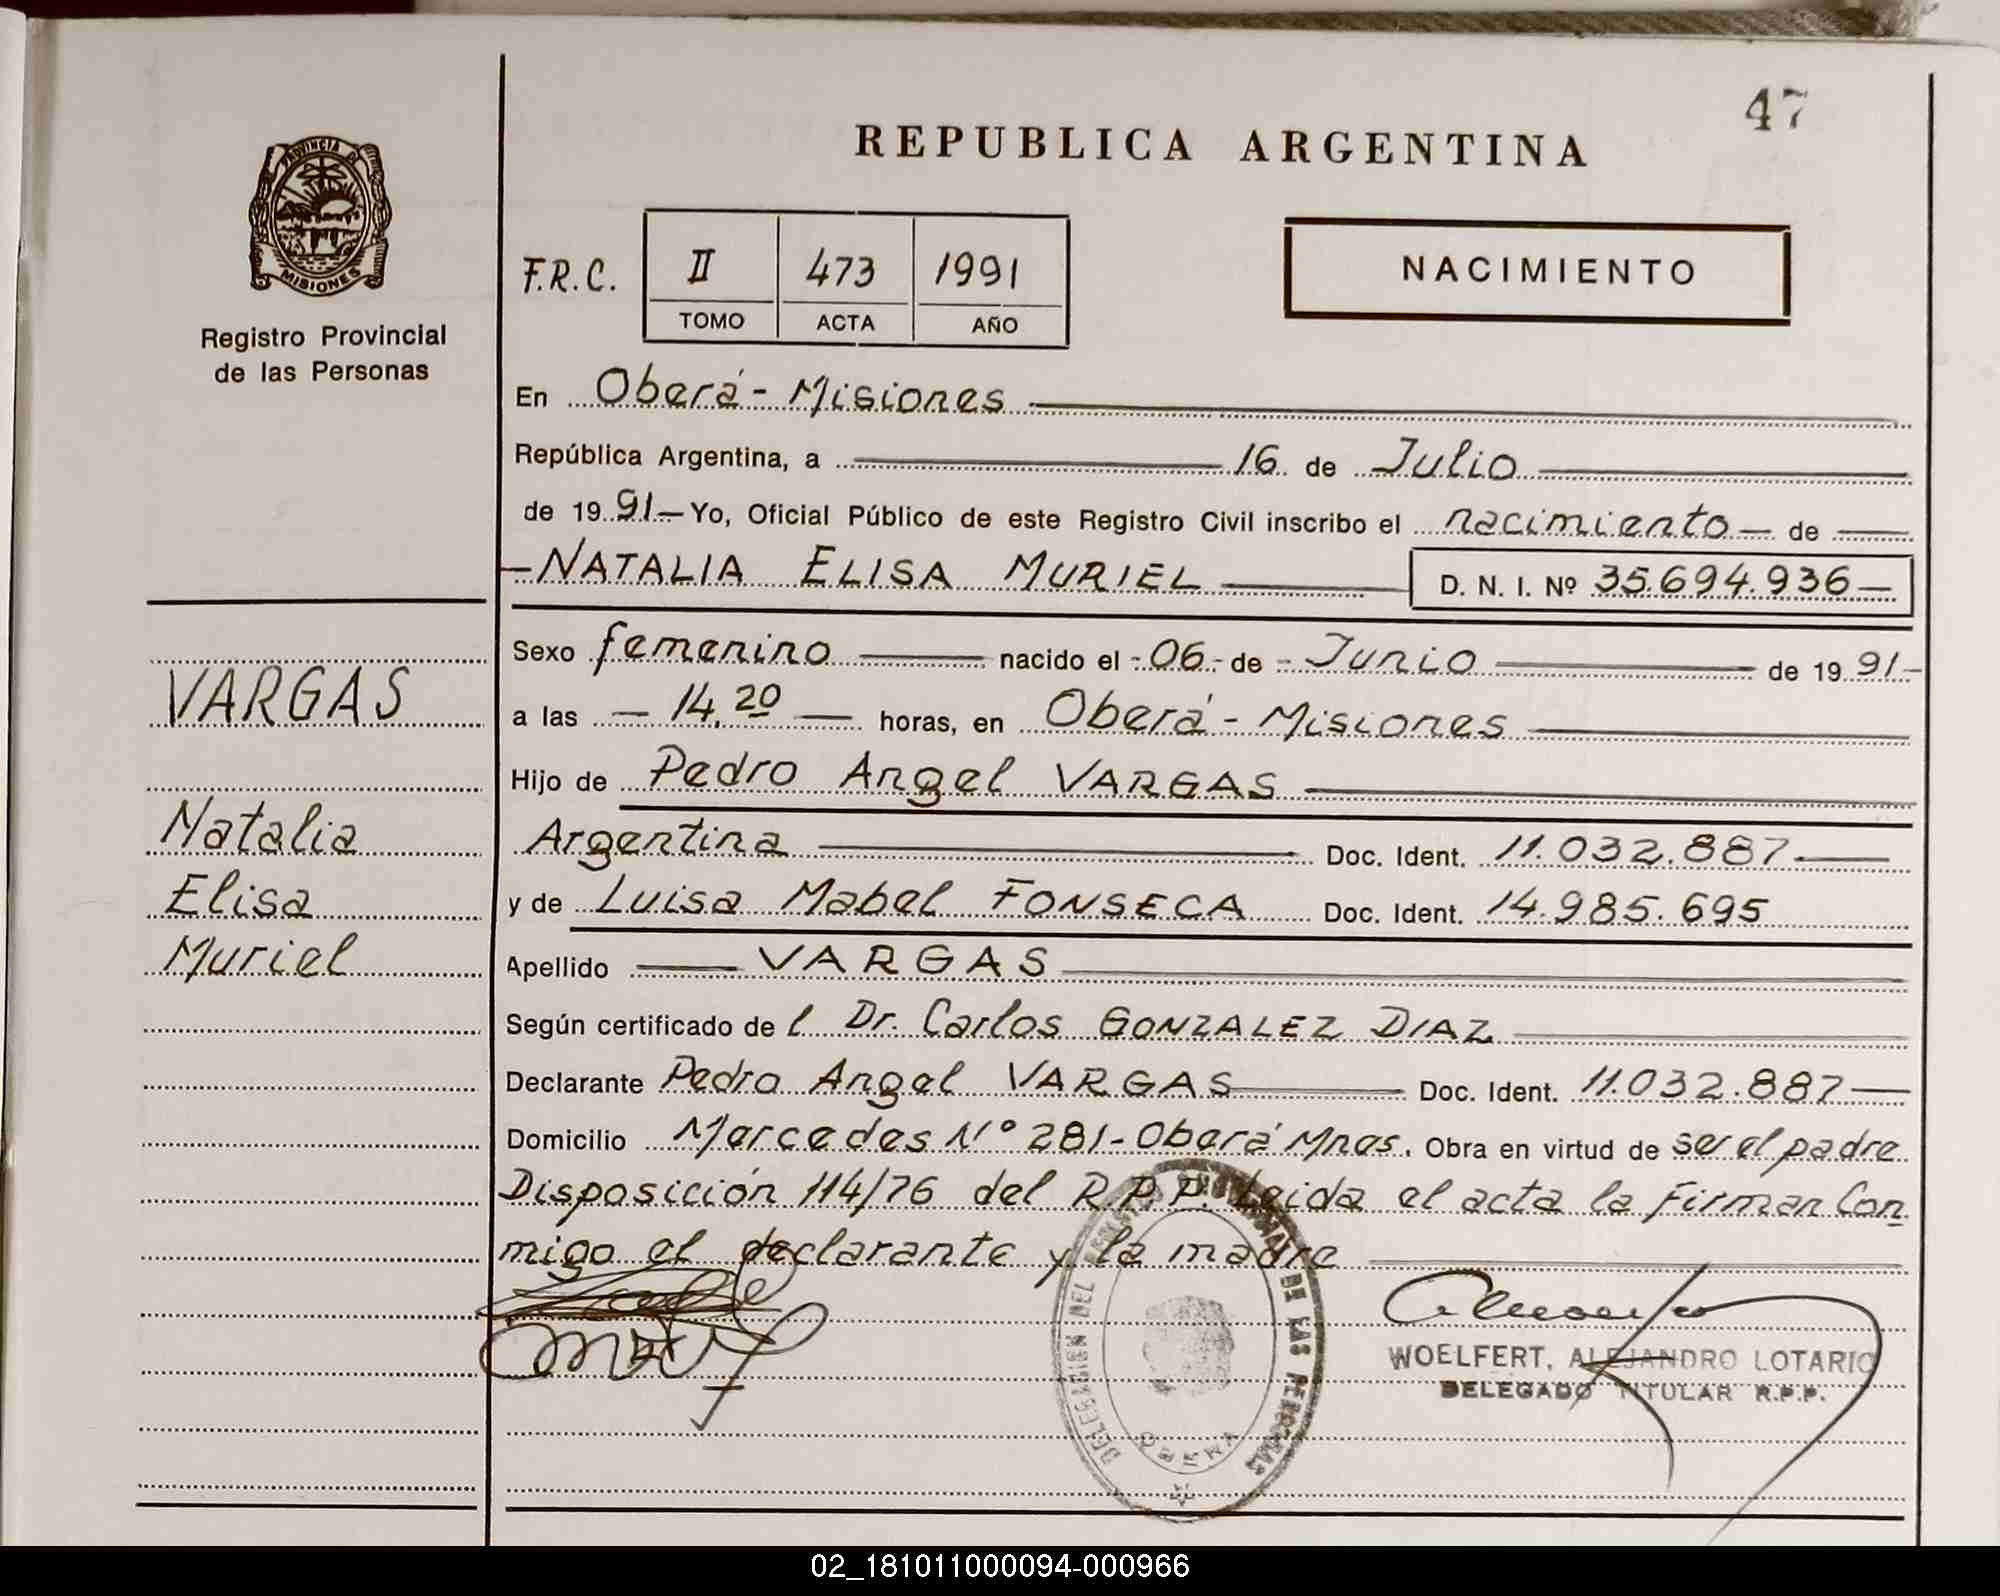 47
REPUBLICA ARGENTINA
PROVINCIA DE
MISIONES
Registro Provincial
de las Personas
F.R.C. II 473 1991
TOMO ACTA AÑO
NACIMIENTO
En Oberá - Misiones
República Argentina, a 16 de Julio
de 1991 Yo, Oficial Público de este Registro Civil inscribo el nacimiento de
NATALIA ELISA MURIEL D. N. I. Nº 35.694.936
Sexo femenino nacido el 06 de Junio de 1991
a las 14,20 horas, en Oberá - Misiones
Hijo de Pedro Angel VARGAS
Argentina Doc. Ident. 11.032.887
y de Luisa Mabel FONSECA Doc. Ident. 14.985.695
Apellido VARGAS
Según certificado del Dr. Carlos GONZALEZ DIAZ
Declarante Pedro Angel VARGAS Doc. Ident. 11.032.887
Domicilio Mercedes Nº 281 - Oberá Mnes. Obra en virtud de ser el padre
Disposición 114/76 del R.P.P. Leida el acta la Firman Con
migo el declarante y la madre
VARGAS
Natalia
Elisa
Muriel
WOELFERT, ALEJANDRO LOTARIO
DELEGADO TITULAR R.P.P.
DELEGACION DEL DE LAS PERSONAS
02_181011000094-000966